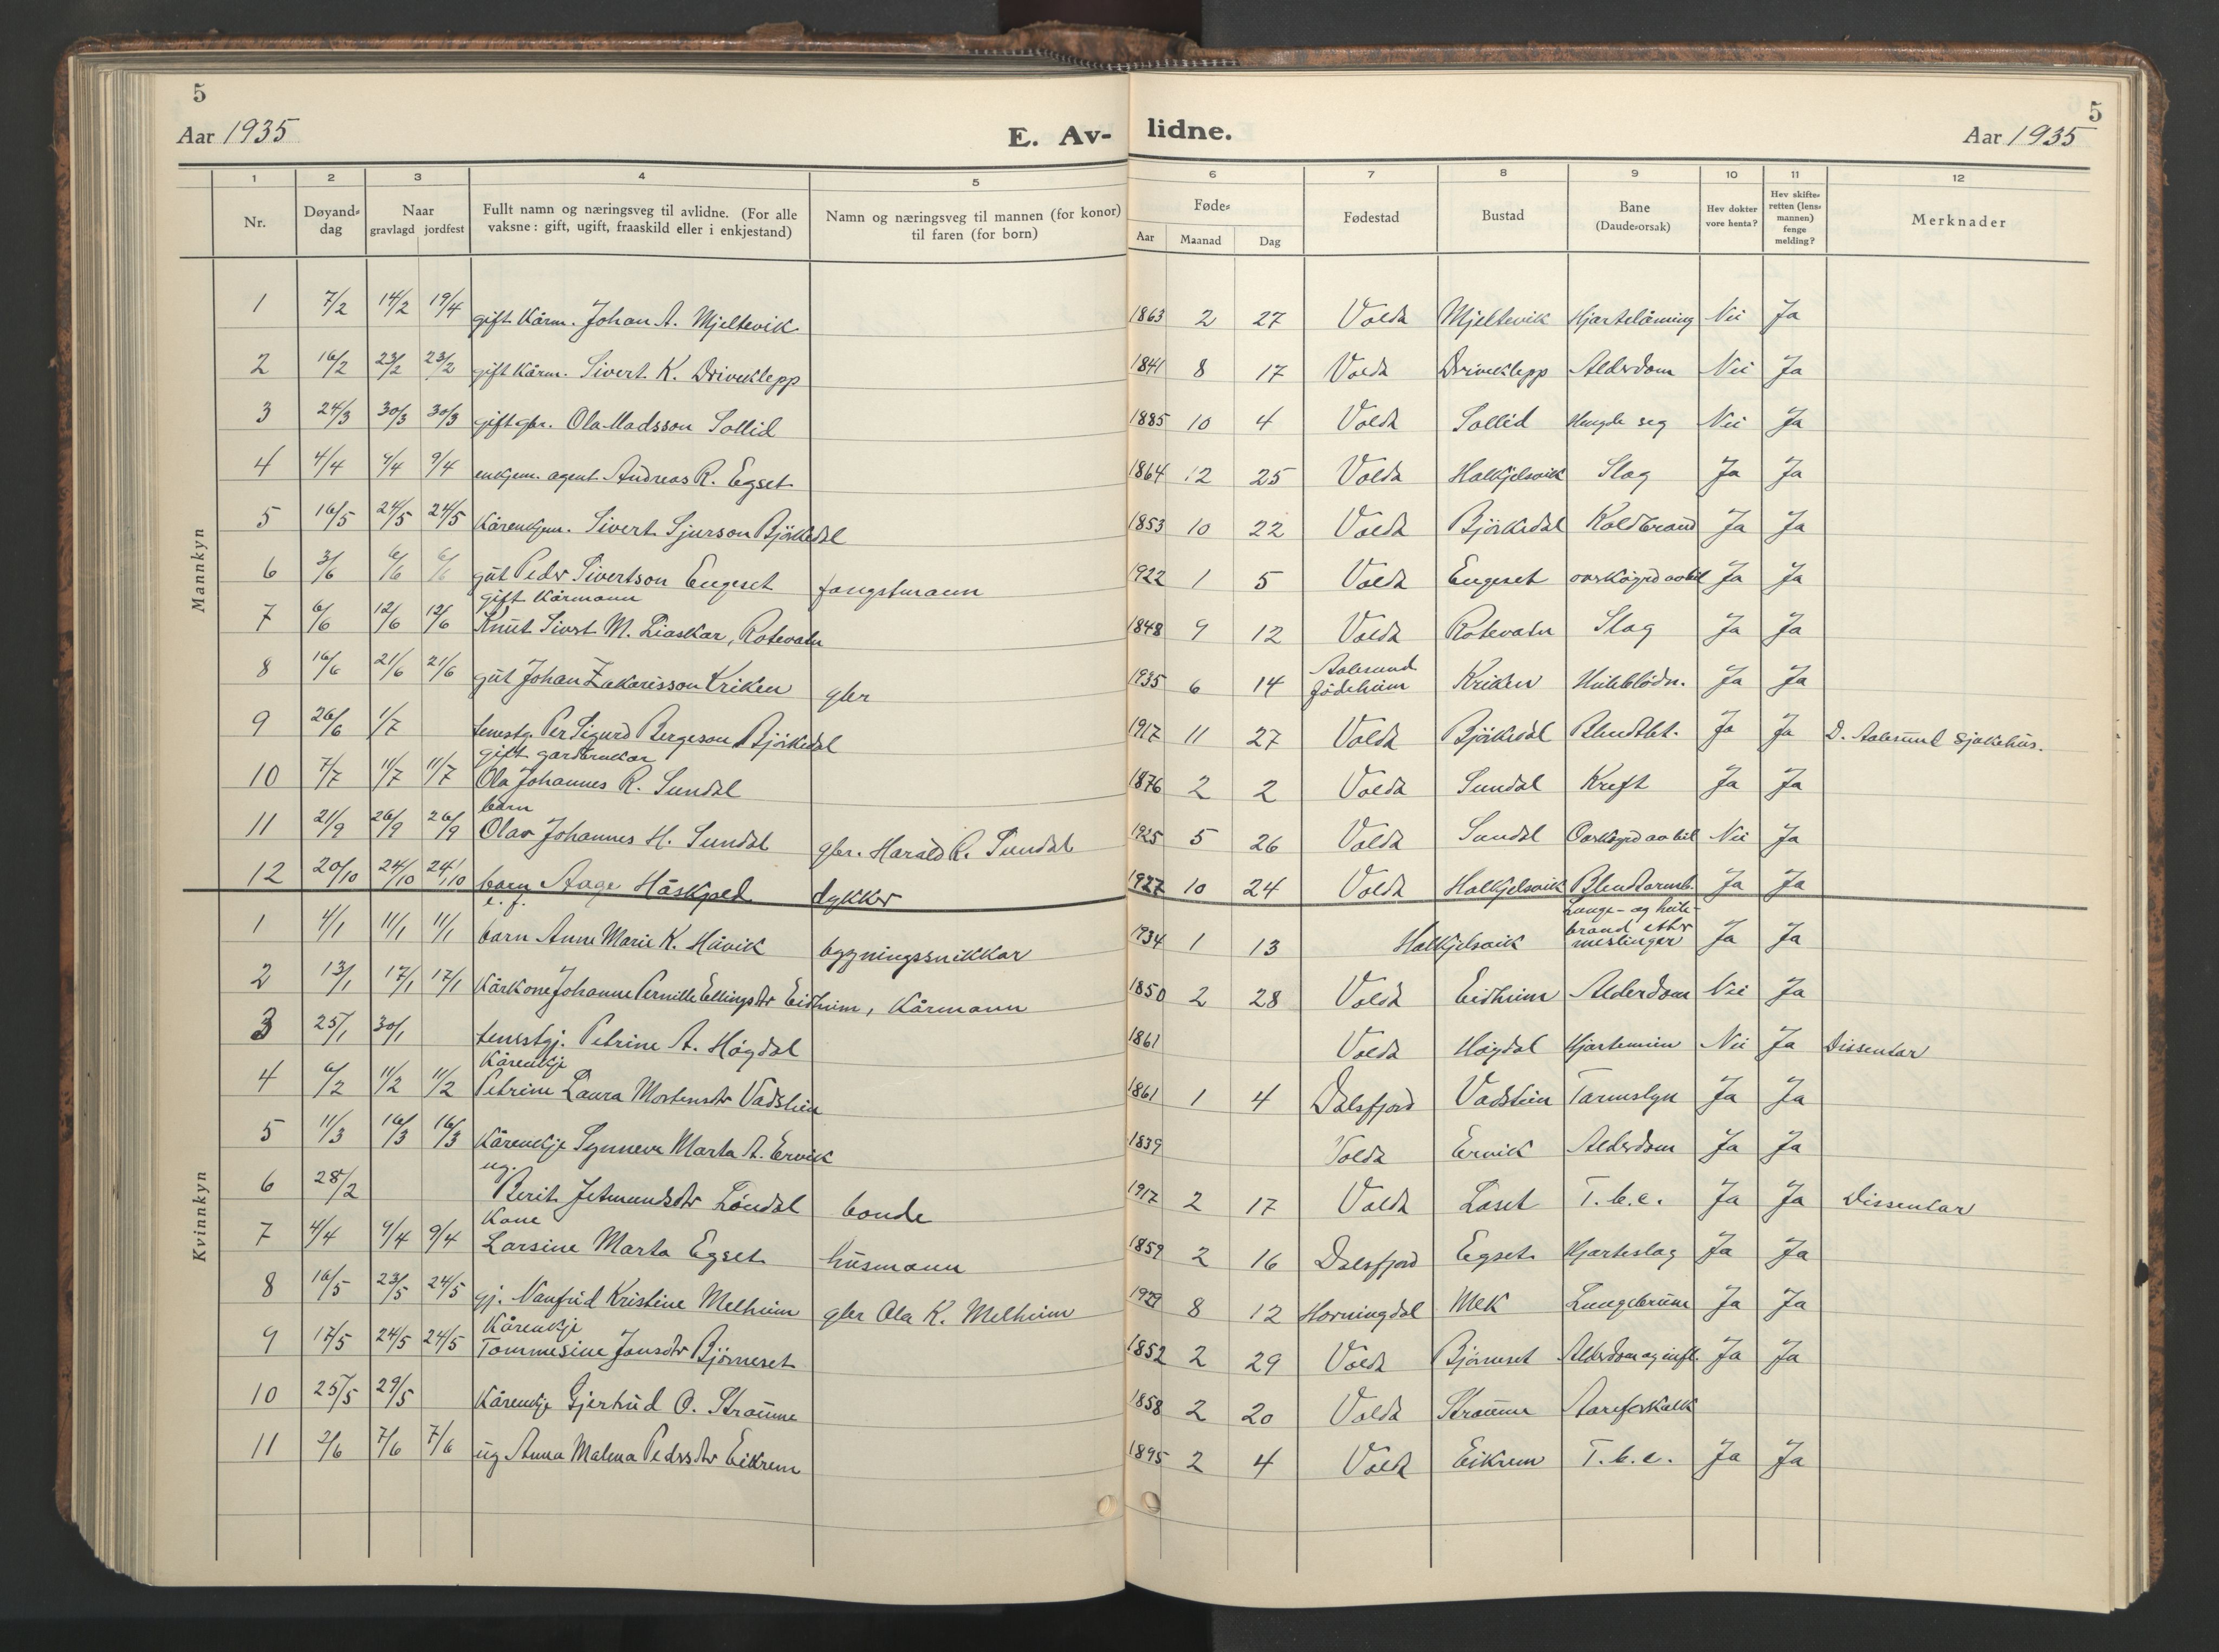 5
Aar 1935
E. Av-lidne.
5
Aar 1935
1 2 3 4 5 6 7 8 9 10 11 12
Nr.
Døyand-dag
Naar gravlagd jordfest
Fullt namn og næringsveg til avlidne. (For alle vaksne: gift, ugift, fraaskild eller i enkjestand)
Namn og næringsveg til mannen (for konor) til faren (for born)
Føde-
Aar Maanad Dag
Fødestad
Bustad
Bane (Daude-orsak)
Hev dokter vore henta?
Hev skifte-retten (lens-mannen) fenge melding?
Merknader
Mannkyn
1 7/2 14/2 19/4 gift kårm. Johan A. Mjeltevik 1863 2 27 Volda Mjeltevik Hjartelåming Nei Ja
2 16/2 23/2 23/2 gift kårm. Sivert K. Driveklepp 1841 8 17 Volda Driveklepp Alderdom Nei Ja
3 24/3 30/3 30/3 gift gbr. Ola Madsson Sollid 1885 10 4 Volda Sollid Hengde seg Nei Ja
4 4/4 9/4 9/4 enkjem. agent Andreas R. Egset 1864 12 25 Volda Halkjelsvik Slag Ja Ja
5 16/5 24/5 24/5 Kårenkjem. Sivert Sjurson Bjørkedal 1853 10 22 Volda Bjørkedal Koldbrand Ja Ja
6 3/6 6/6 6/6 gut Peder Sivertson Engeset fangstmann 1922 1 5 Volda Engeset overkøyrd av bil Ja Ja
7 6/6 12/6 12/6 gift kårmann Knut Sivert M. Liaskar, Rotevatn 1848 9 12 Volda Rotevatn Slag Ja Ja
8 16/6 21/6 21/6 gut Johan Zakarisson Kriken gbr 1935 6 14 Aalesund fødeheim Kriken Heileblødn. Ja Ja
9 26/6 1/7 tenestg. Per Sigurd Bergeson Bjørkedal 1917 11 27 Volda Bjørkedal Blindtbt. Ja Ja D. Aalesund Sjukehus.
10 7/7 11/7 11/7 gift gardbrukar Ola Johannes R. Sundal 1876 2 2 Volda Sundal Kreft Ja Ja
11 21/9 26/9 26/9 barn Olav Johannes H. Sundal gbr. Harald R. Sundal 1925 5 26 Volda Sundal Overkøyrd av bil Nei Ja
12 20/10 24/10 24/10 barn Aage Håskjold dykker 1927 10 24 Volda Halkjelsvik Blindtarmb. Ja Ja
Kvinnkyn
1 4/1 11/1 11/1 e. f. barn Anne Marie K. Håvik bygningssnikkar 1934 1 13 Halkjelsvik Lunge- og heile-brand etter meslingar Ja Ja
2 13/1 17/1 17/1 Kårkone Johanne Pernille Ellingsdtr Eidheim, Kårmann 1850 2 28 Volda Eidheim Alderdom Nei Ja
3 25/1 30/1 tenestgj. Petrine A. Høgdal 1861 Volda Høgdal Hjartemein Nei Ja Dissentar
4 6/2 11/2 11/2 Kårenkje Petrine Laura Mortensdtr Vadstein 1861 1 4 Dalsfjord Vadstein Tarmslyn Ja Ja
5 11/3 16/3 16/3 Kårenkje Synneva Marta A. Ervik 1839 Volda Ervik Alderdom Ja Ja
6 28/2 ug. Berit Jetmundsdtr Løndal bonde 1917 2 17 Volda Løset T.b.c. Ja Ja Dissentar
7 4/4 9/4 9/4 Kone Larsine Marta Egset husmann 1859 2 16 Dalsfjord Egset Hjarteslag Ja Ja
8 16/5 23/5 24/5 gj. Nanfrid Kristine Melheim gbr Ola K. Melheim 1929 8 12 Horningdal Mek Lungebrune Ja Ja
9 17/5 24/5 24/5 Kårenkje Tommesine Jonsdtr Bjørneset 1852 2 29 Volda Bjørneset Alderdom og infl. Ja Ja
10 25/5 29/5 Kårenkje Gjertrud O. Straume 1858 2 20 Volda Straume Aareforkalk
11 2/6 7/6 7/6 ug Anna Malena Pedersdtr Eikrem 1895 2 4 Volda Eikrem T.b.c. Ja Ja